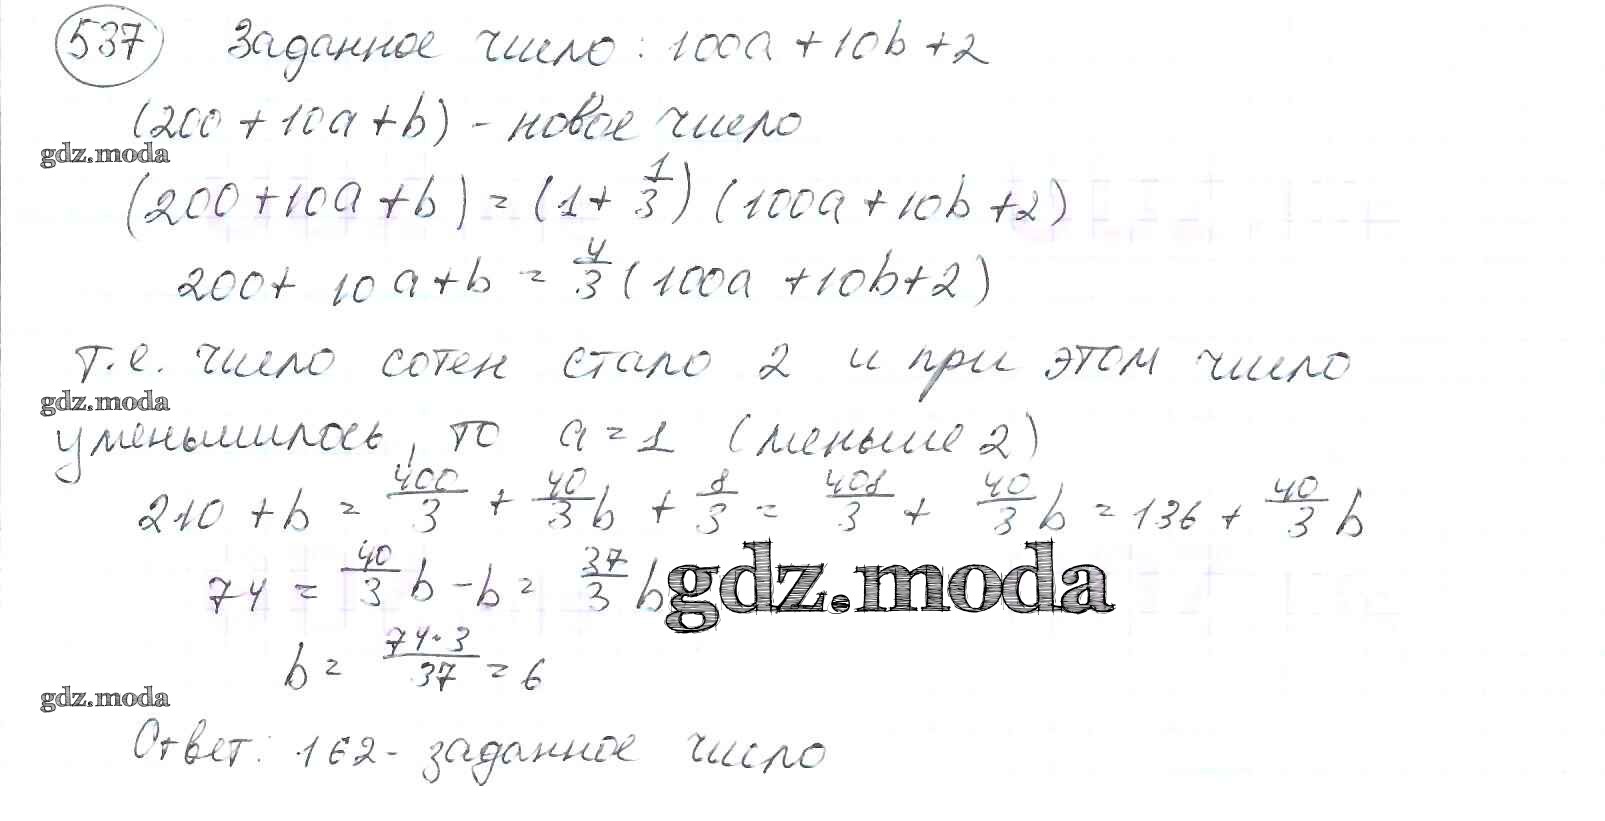 537 Заданное число: 100a + 10b + 2
(200 + 10a + b) - новое число
gdz.moda
(200 + 10a + b) = (1 + 1/3) (100a + 10b + 2)
200 + 10a + b = 4/3 (100a + 10b + 2)
т.е. число сотен стало 2 и при этом число
gdz.moda
уменьшилось, то a = 1 (меньше 2)
210 + b = 400/3 + 40/3 b + 8/3 = 408/3 + 40/3 b = 136 + 40/3 b
74 = 40/3 b - b = 37/3 b
gdz.moda
b = 74·3/37 = 6
gdz.moda
Ответ: 162 - заданное число